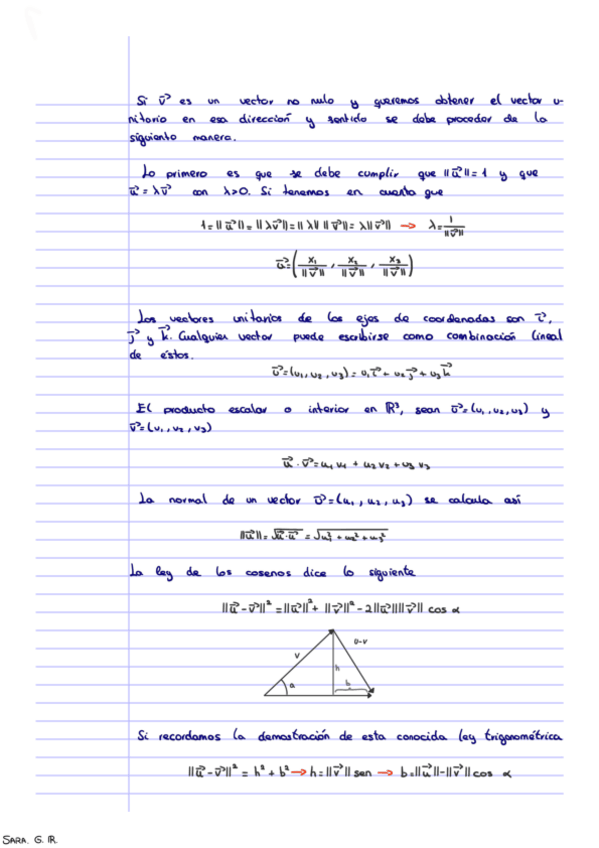 Si v⃗ es un vector no nulo y queremos obtener el vector u-
nitario en esa dirección y sentido se debe proceder de la
siguiente manera.
Lo primero es que se debe cumplir que ||u⃗||=1 y que
u⃗=λv⃗ con λ>0. Si tenemos en cuenta que
1=||u⃗||=||λv⃗||=||λ|| ||v⃗||=λ||v⃗|| → λ=1/||v⃗||
u⃗=(x₁/||v⃗||, x₂/||v⃗||, x₃/||v⃗||)
Los vectores unitarios de los ejes de coordenadas son i⃗,
j⃗ y k⃗. Cualquier vector puede escribirse como combinación lineal
de éstos.
u⃗=(u₁,u₂,u₃)=u₁i⃗+u₂j⃗+u₃k⃗
El producto escalar o interior en ℝ³, sean u⃗=(u₁,u₂,u₃) y
v⃗=(v₁,v₂,v₃)
u⃗·v⃗=u₁v₁+u₂v₂+u₃v₃
La normal de un vector u⃗=(u₁,u₂,u₃) se calcula así
||u⃗||=√(u⃗·u⃗)=√(u₁²+u₂²+u₃²)
La ley de los cosenos dice lo siguiente
||u⃗-v⃗||²=||u⃗||²+||v⃗||²-2||u⃗||||v⃗|| cos α
v
u-v
h
a
b
Si recordamos la demostración de esta conocida ley trigonométrica
||u⃗-v⃗||²=h²+b²→h=||v⃗|| sen → b=||u⃗||-||v⃗||cos α
SARA. G. R.